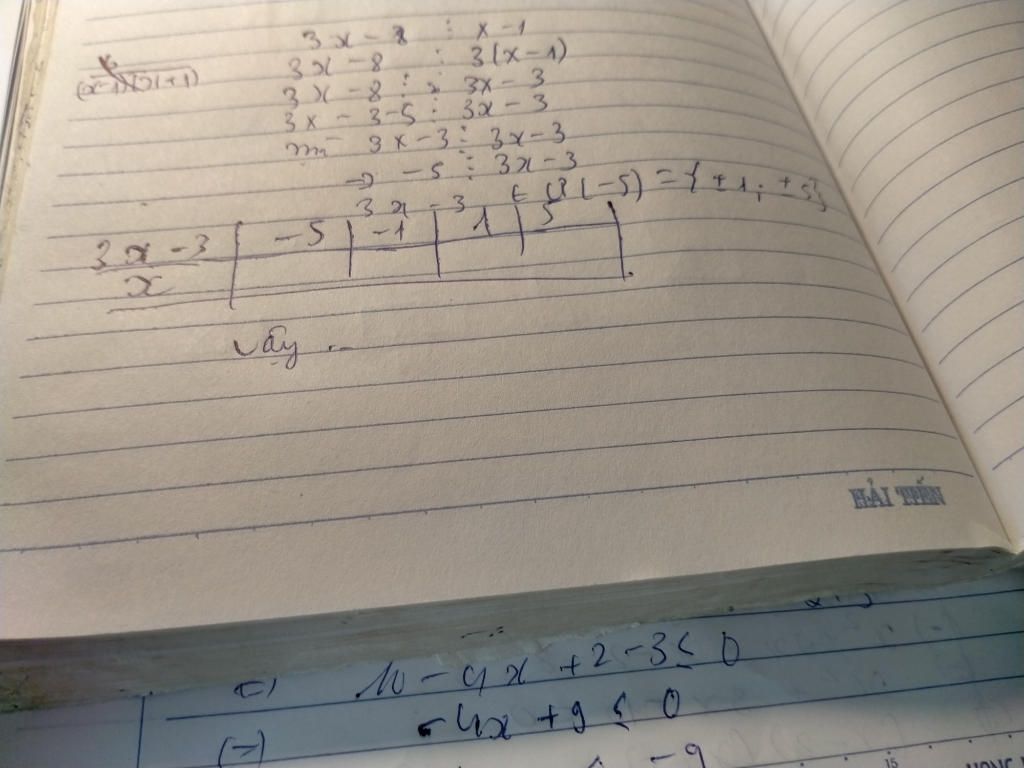 3x - 8 ⋮ x - 1
(x-1)(x+1)
3x - 8 ⋮ 3(x - 1)
3x - 8 ⋮ 3x - 3
3x - 3 - 5 ⋮ 3x - 3
3x - 3 ⋮ 3x - 3
→ -5 ⋮ 3x - 3
3x - 3 ∈ Ư(-5) = {±1; ±5}
3x - 3 | -5 | -1 | 1 | 5
x
Vậy ...
HẢI TIẾN
10 - 4x + 2 - 3 ≤ 0
-4x + 9 ≤ 0
- 9
15